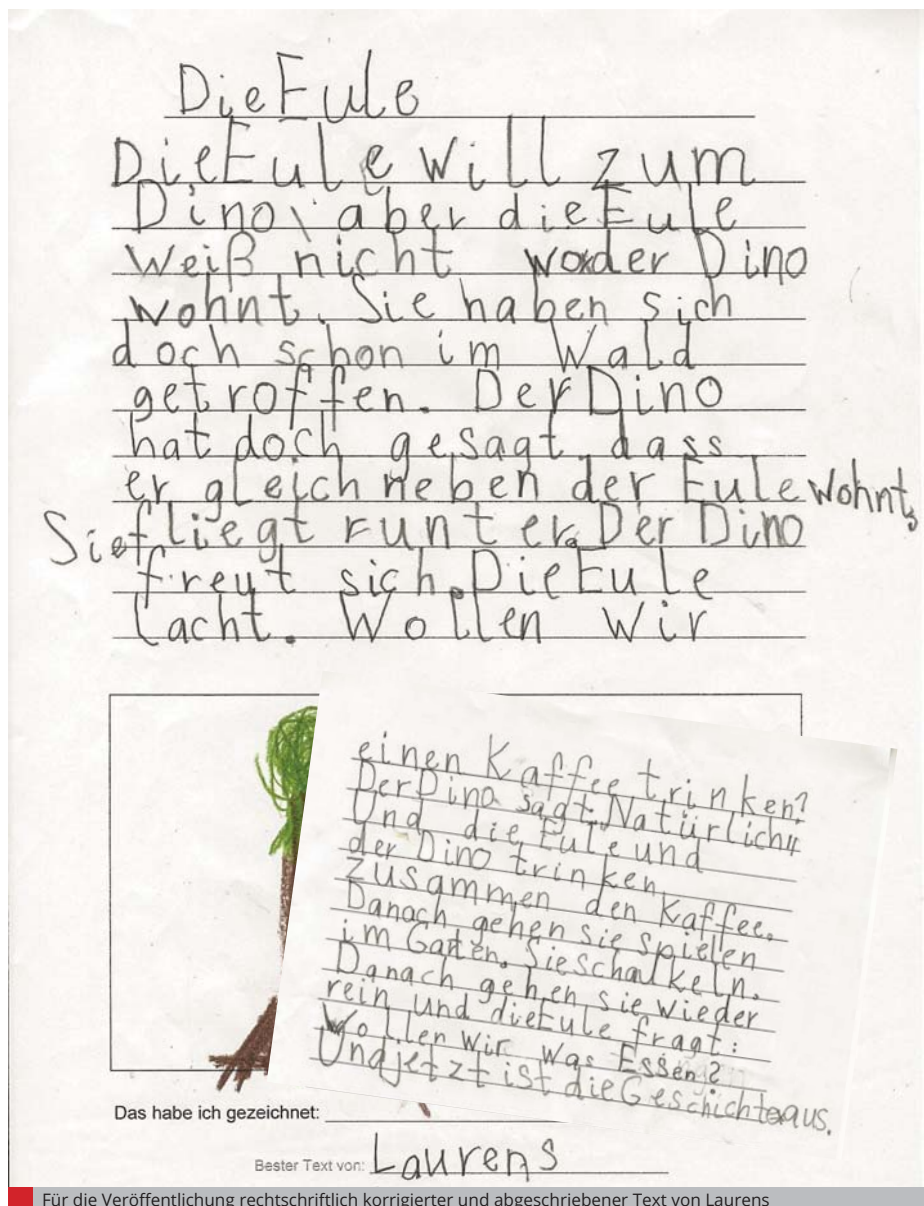 Die Eule
Die Eule will zum
Dino, aber die Eule
weiß nicht wo der Dino
wohnt. Sie haben sich
doch schon im Wald
getroffen. Der Dino
hat doch gesagt, dass
er gleich neben der Eule wohnt.
Sie fliegt runter. Der Dino
freut sich. Die Eule
lacht. Wollen wir
einen Kaffee trinken?
Der Dino sagt. Natürlich"
Und die Eule und
der Dino trinken
zusammen den Kaffee.
Danach gehen sie spielen
im Garten. Sie Schaukeln.
Danach gehen sie wieder
rein und die Eule fragt:
Wollen wir was Essen?
Und jetzt ist die Geschichte aus.
Das habe ich gezeichnet:
Bester Text von: Laurens
Für die Veröffentlichung rechtschriftlich korrigierter und abgeschriebener Text von Laurens